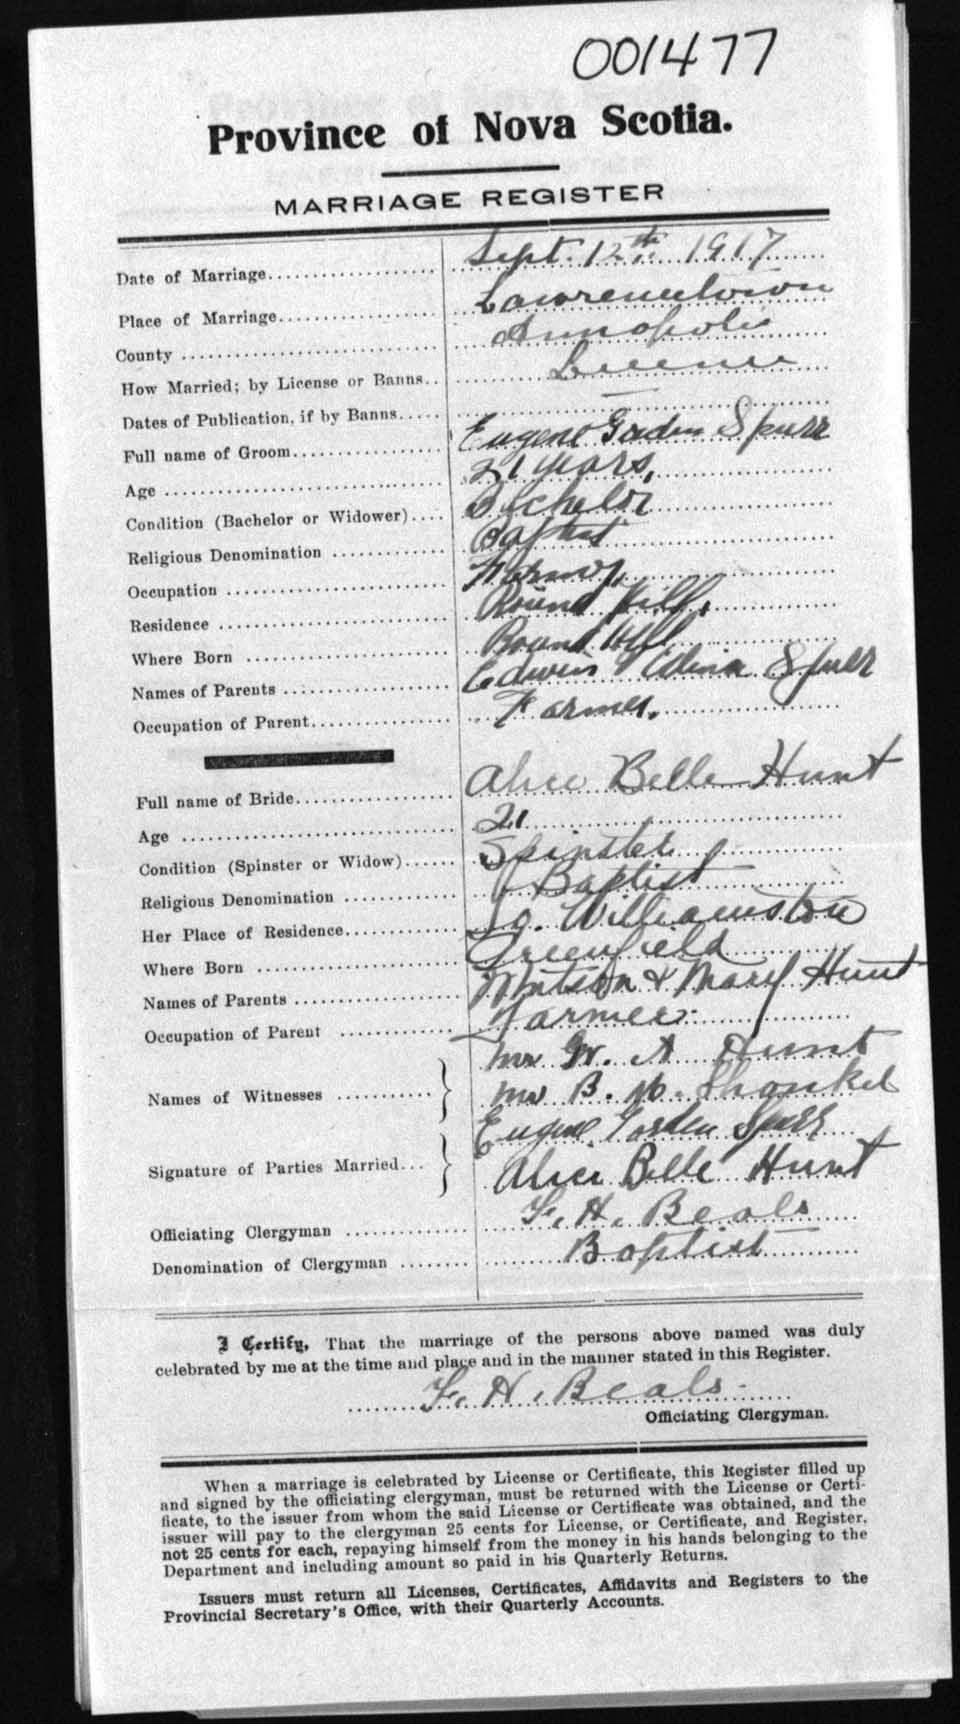 001477
Province of Nova Scotia.
MARRIAGE REGISTER
Date of Marriage Sept. 12th 1917
Place of Marriage Lawrencetown
County Annapolis
How Married; by License or Banns License
Dates of Publication, if by Banns —
Full name of Groom Eugene Gorden Spurr
Age 21 years,
Condition (Bachelor or Widower) Bachelor
Religious Denomination Baptist
Occupation Farmer,
Residence Round Hill,
Where Born Round Hill
Names of Parents Edwin Edina Spurr
Occupation of Parent Farmer,
Full name of Bride Alice Belle Hunt
Age 21
Condition (Spinster or Widow) Spinster
Religious Denomination Baptist
Her Place of Residence So. Williamston
Where Born Greenfield
Names of Parents & Mary Hunt
Occupation of Parent Farmer
Names of Witnesses Mr W. A Hunt
Mrs B. M. Shankel
Signature of Parties Married Eugene Gorden Spurr
Alice Belle Hunt
Officiating Clergyman F. H. Beals
Denomination of Clergyman Baptist
I Certify, That the marriage of the persons above named was duly
celebrated by me at the time and place and in the manner stated in this Register.
F. H. Beals
Officiating Clergyman.
When a marriage is celebrated by License or Certificate, this Register filled up
and signed by the officiating clergyman, must be returned with the License or Certi-
ficate, to the issuer from whom the said License or Certificate was obtained, and the
issuer will pay to the clergyman 25 cents for License, or Certificate, and Register,
not 25 cents for each, repaying himself from the money in his hands belonging to the
Department and including amount so paid in his Quarterly Returns.
Issuers must return all Licenses, Certificates, Affidavits and Registers to the
Provincial Secretary's Office, with their Quarterly Accounts.